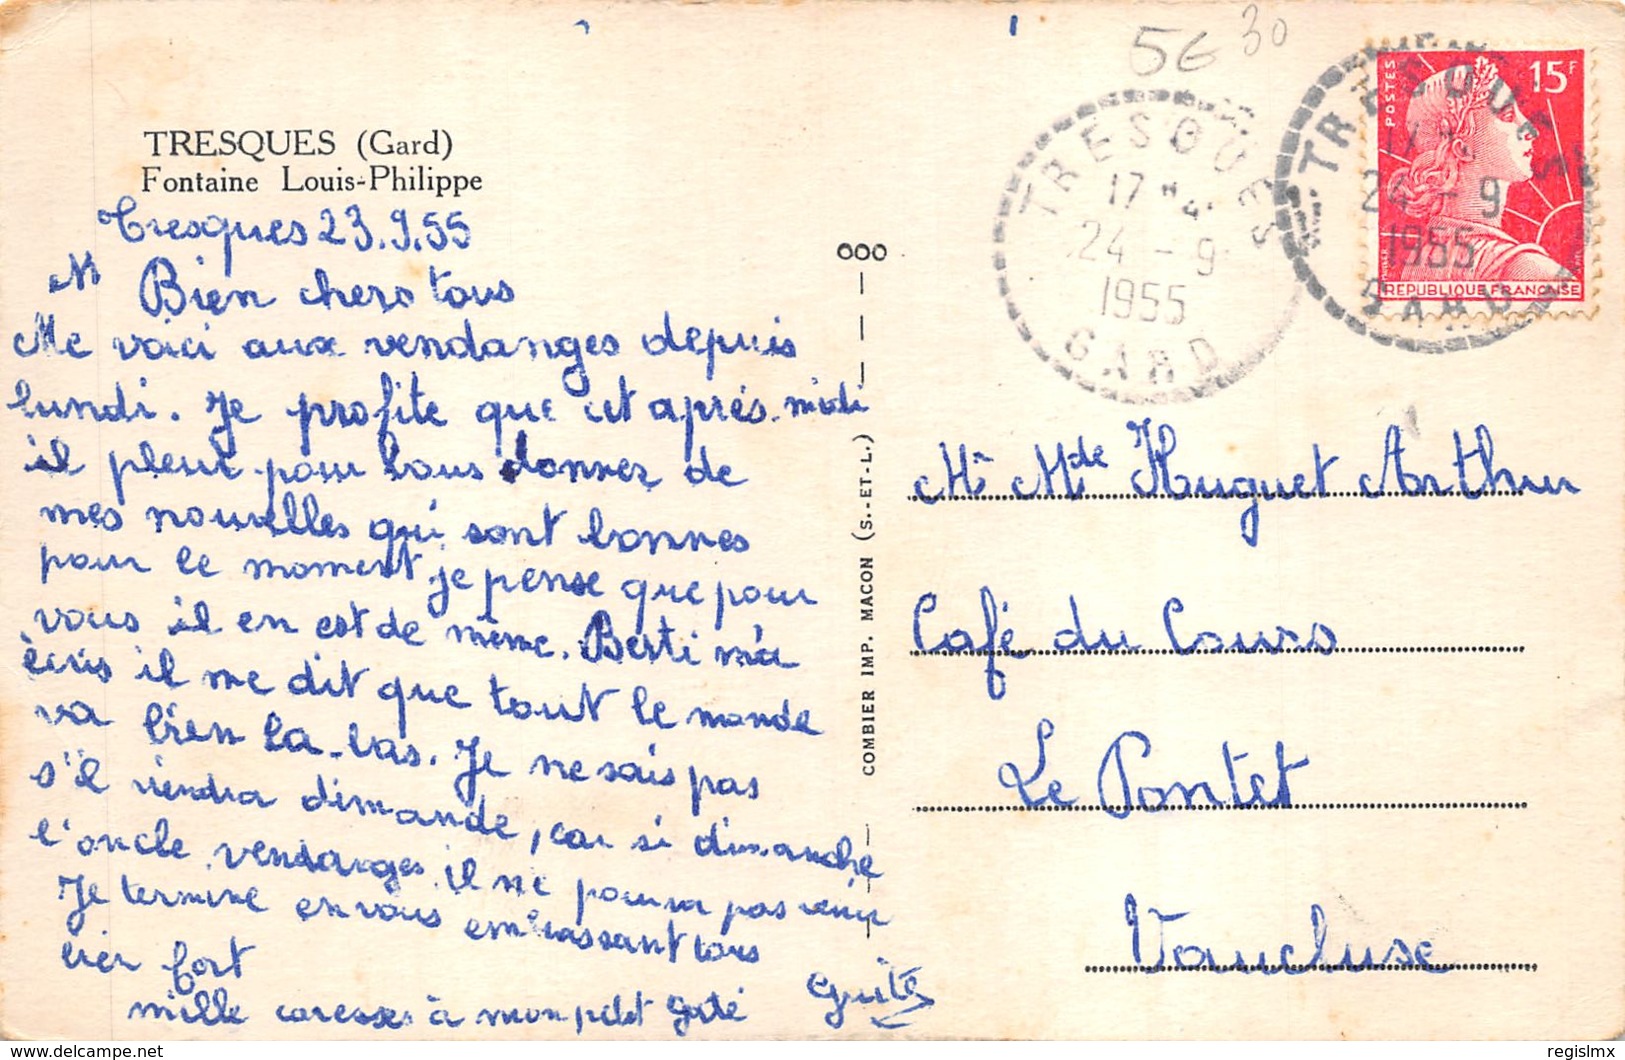 56 30
TRESQUES (Gard)
Fontaine Louis-Philippe
Tresques 23.9.55
Bien chers tous
Me voici aux vendanges depuis
lundi. Je profite que cet après-midi
il pleut pour vous donner de
mes nouvelles qui sont bonnes
pour le moment je pense que pour
vous il en est de même. Berti m'a
écris il me dit que tout le monde
va bien la-bas. Je ne sais pas
s'il viendra dimande, car si dimanche
l'oncle vendanges il ne pourra pas venir
Je termine en vous embrassant tous
bien fort
mille caresses à mon petit gaté
Guite
ooo
COMBIER IMP. MACON (S.-ET-L.)
TRESQUES
17 H
24 - 9
1955
GARD
TRESQUES
17 H
24 - 9
1955
GARD
POSTES
15F
REPUBLIQUE FRANÇAISE
Mr Mde Huguet Arthur
Café du Cours
Le Pontet
Vaucluse
www.delcampe.net
regislmx